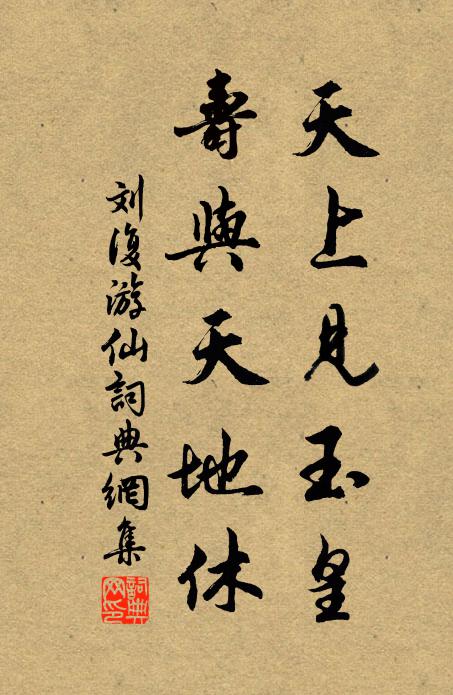 天上見玉皇
壽與天地休
刘復游仙詞典網集
詞典網印